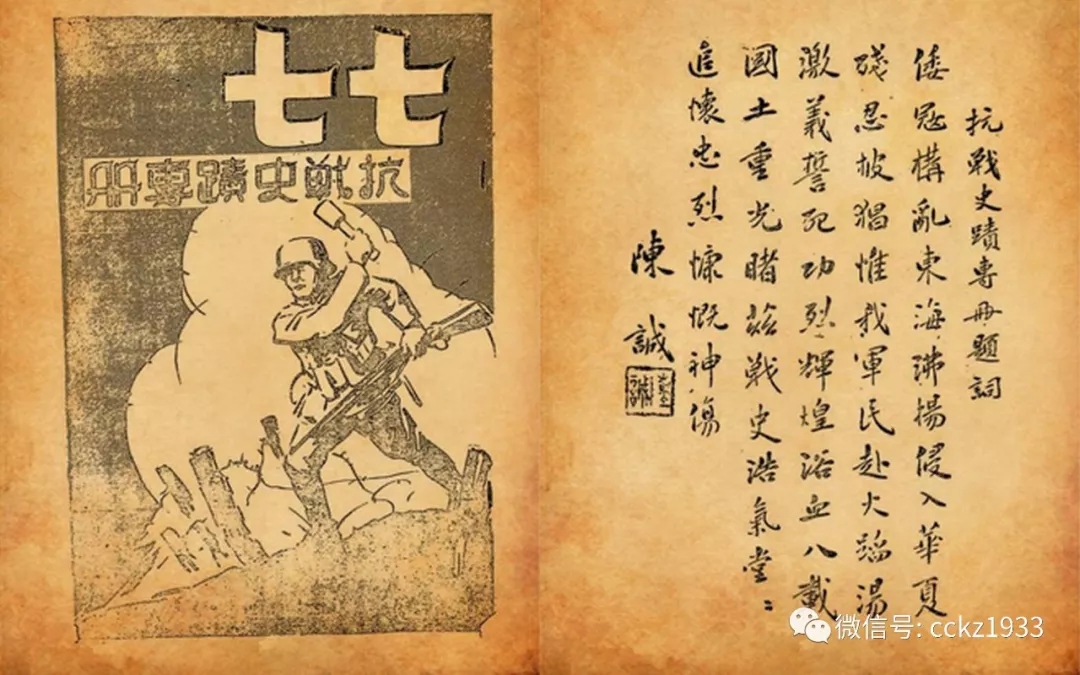 七七
抗戰史蹟專冊
抗戰史蹟專冊題詞
倭寇構亂東海沸揚侵入華夏
殘忍披猖惟我軍民赴火蹈湯
激義誓死功烈輝煌浴血八載
國土重光睹茲戰史浩氣堂〻
追懷忠烈慷慨神傷
陳誠
微信号: cckz1933